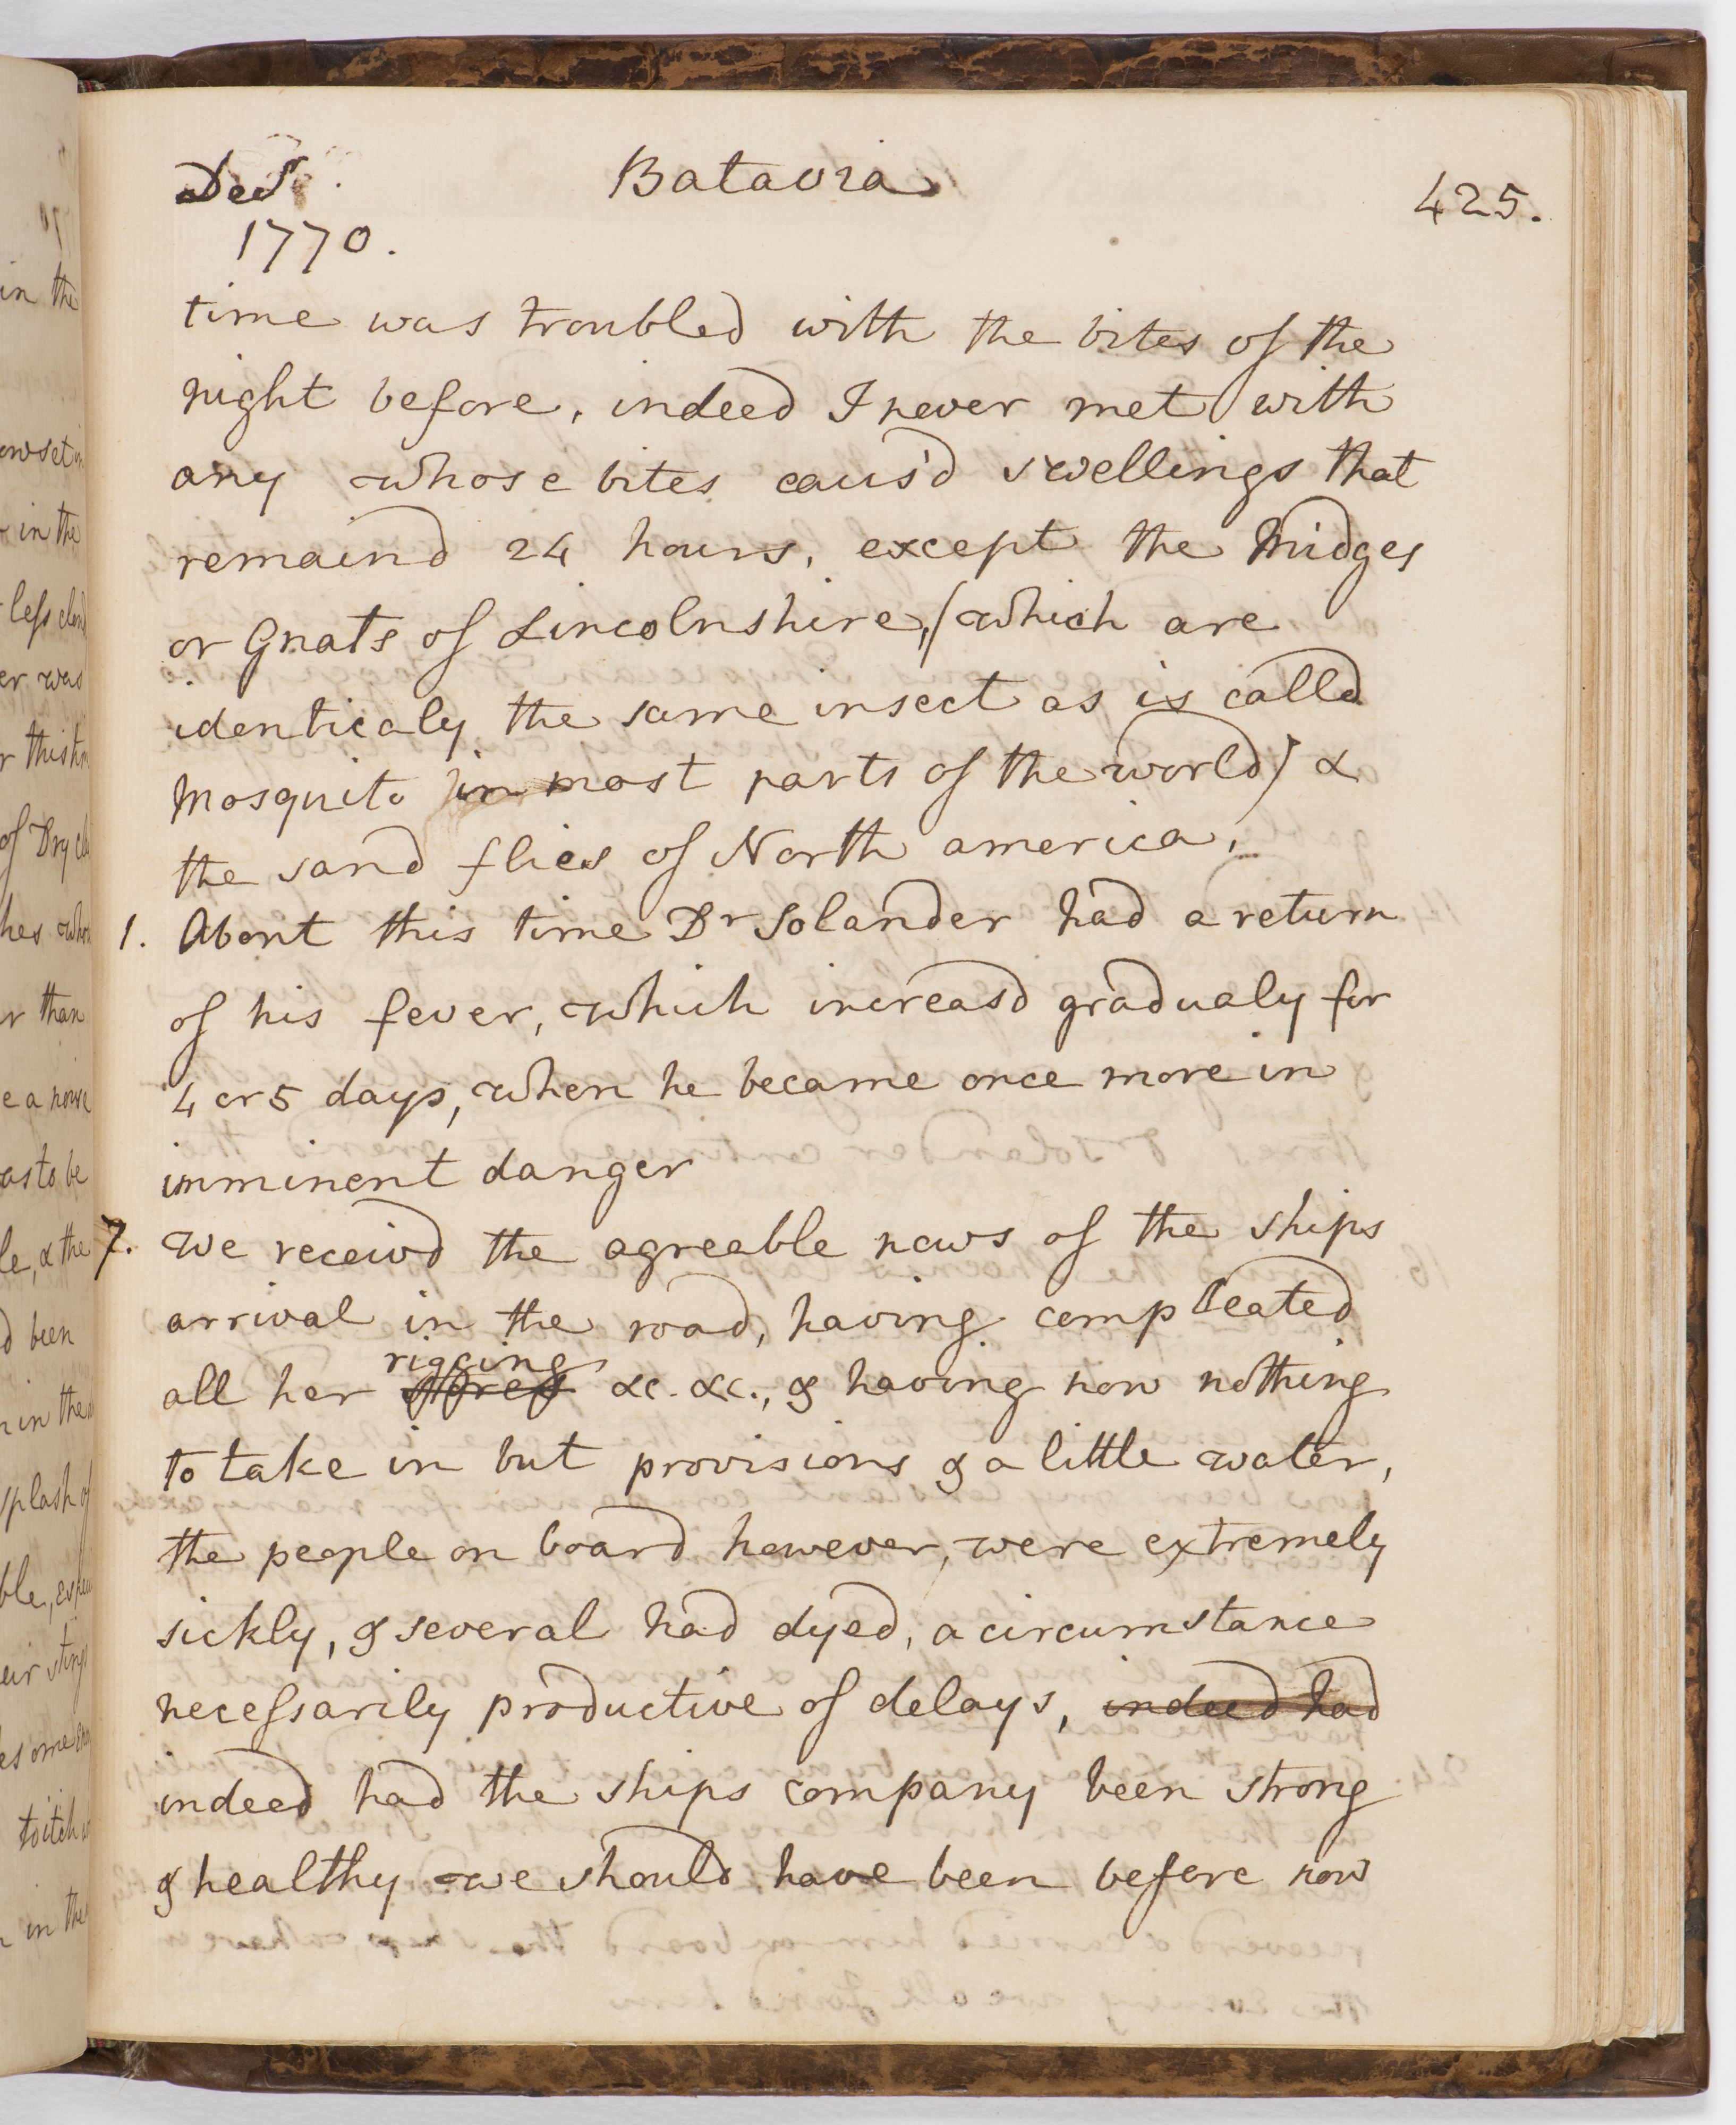 Decr.
Batavia
425.
1770.
time was troubled with the bites of the
night before, indeed I never met with
any whose bites caus'd swellings that
remaind 24 hours, except the Midges
or Gnats of Lincolnshire, (which are
identicaly the same insect as is calld
Mosquito in most parts of the world) &
the sand flies of North america.
1. About this time Dr Solander had a return
of his fever, which increasd gradualy for
4 or 5 days, when he became once more in
imminent danger
7. We receivd the agreable news of the ships
arrival in the road, having compleated
rigging
all her stores &c. &c., & having now nothing
to take in but provisions & a little water,
the people on board however, were extremely
sickly, & several had dyed, a circumstance
necessarily productive of delays, indeed had
indeed had the ships company been strong
& healthy we should have been before now